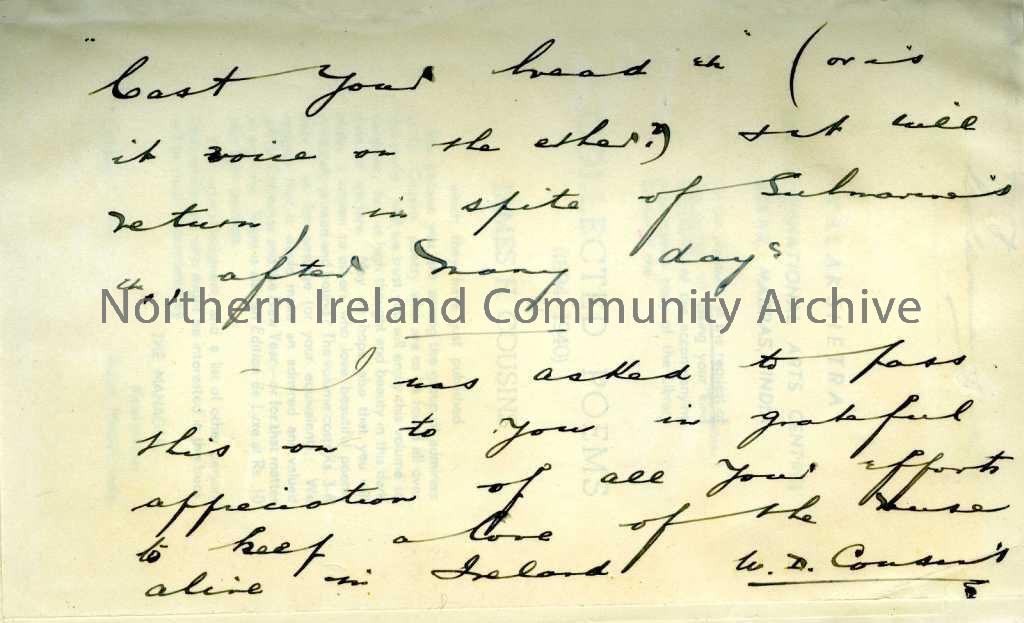 "Cast Your bread" etc" (or is
it voice on the ether?) & it will
return, in spite of Submarine's
after many days
Northern Ireland Community Archive
I was asked to pass
this on to you in grateful
appreciation of all your efforts
to keep a love of the muse
alive in Ireland W. D. Cousins